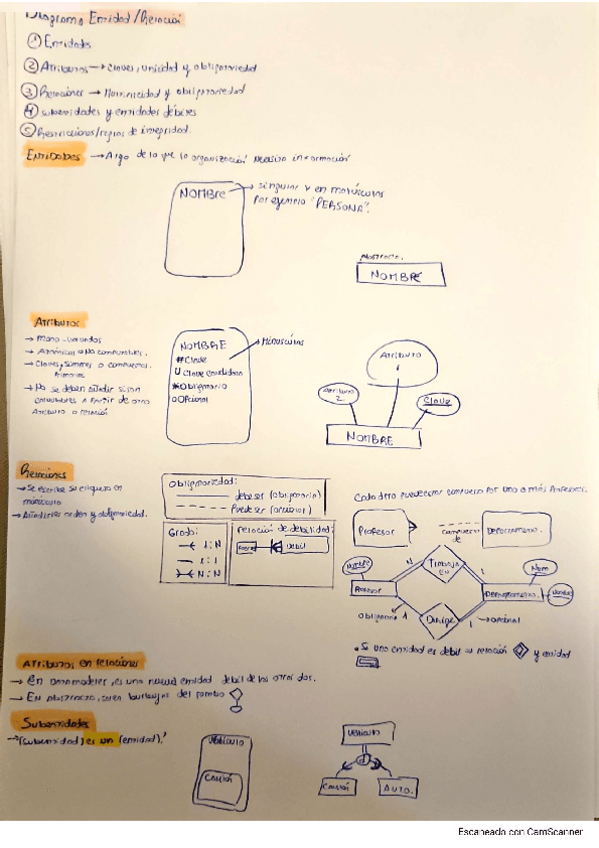 Diagrama Entidad/Relación
① Entidades
② Atributos → Claves, unicidad y obligatoriedad
③ Relaciones → Numericidad y obligatoriedad
④ Subentidades y entidades débiles
⑤ Restricciones/reglas de integridad.
Entidades → Algo de lo que la organización necesita información
NOMBRE → singular y en mayúsculas
Por ejemplo "PERSONA".
Abstracto.
NOMBRE
Atributos
→ Mono-valorados
→ Atómicos o No compuestos.
→ Claves, Simples o compuestas.
Primarias
→ No se deben añadir si son
calculables a partir de otro
Atributo o relación
NOMBRE → Minúsculas
# Clave
U Clave candidata
* Obligatorio
o Opcional
Atributo
1
Atributo
2
Clave
NOMBRE
Relaciones
→ Se escribe su etiqueta en
minúscula
→ Añadirles orden y obligatoriedad.
Obligatoriedad:
debe ser (obligatorio)
Puede ser (opcional)
Grado:
1:N
1:1
N:N
relación de debilidad:
Fuerte
Debil
Cada dpto puede estar compuesto por uno o más Profesores.
Profesor
compuesto
de
Departamento.
Nombre
Profesor
N
Trabaja
EN
1
Nom
Departamento.
Obligatorio
1
Dirige
1
→ opcional
• Si una entidad es débil su relación y entidad
Atributos en relaciones
→ En datamodeler, es una nueva entidad débil de las otras dos.
→ En abstracto, salen burbujas del rombo
Subentidades
→ "(subentidad) es un (entidad)."
VEHÍCULO
CAMIÓN
VEHÍCULO
d
CAMIÓN
AUTO.
Escaneado con CamScanner